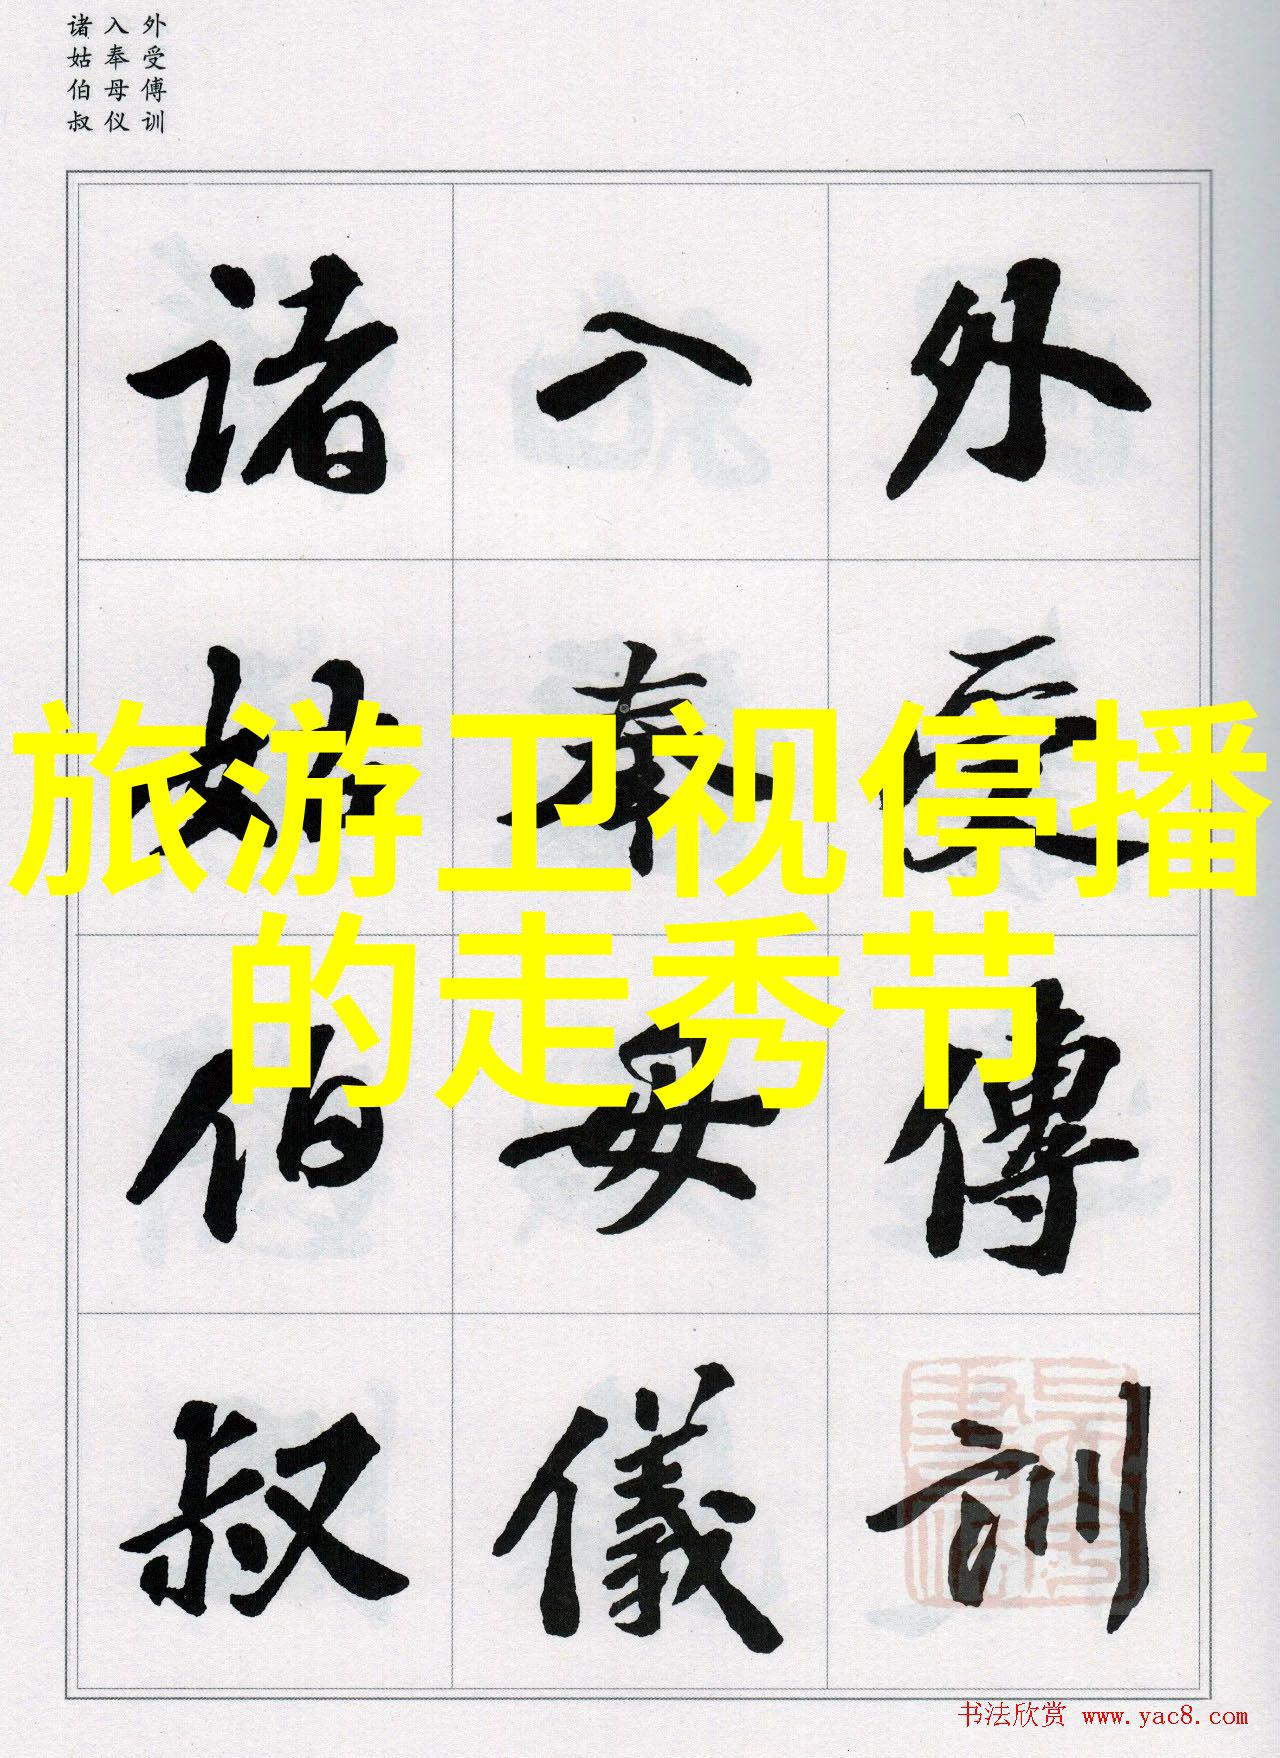 诸入外
姑奉受
伯母傅
叔仪训
诸入外
姑奉受
伯母傅
叔儀訓
旅游卫视停播
的走秀节
书法欣赏 www.yac8.com